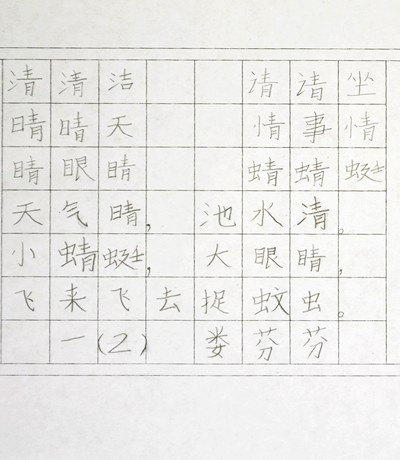 清 清洁 请 请坐
晴 晴天 情 事情
睛 眼睛 蜻 蜻蜓
天气晴，池水清。
小蜻蜓，大眼睛，
飞来飞去捉蚊虫。
一(2) 娄芬芬